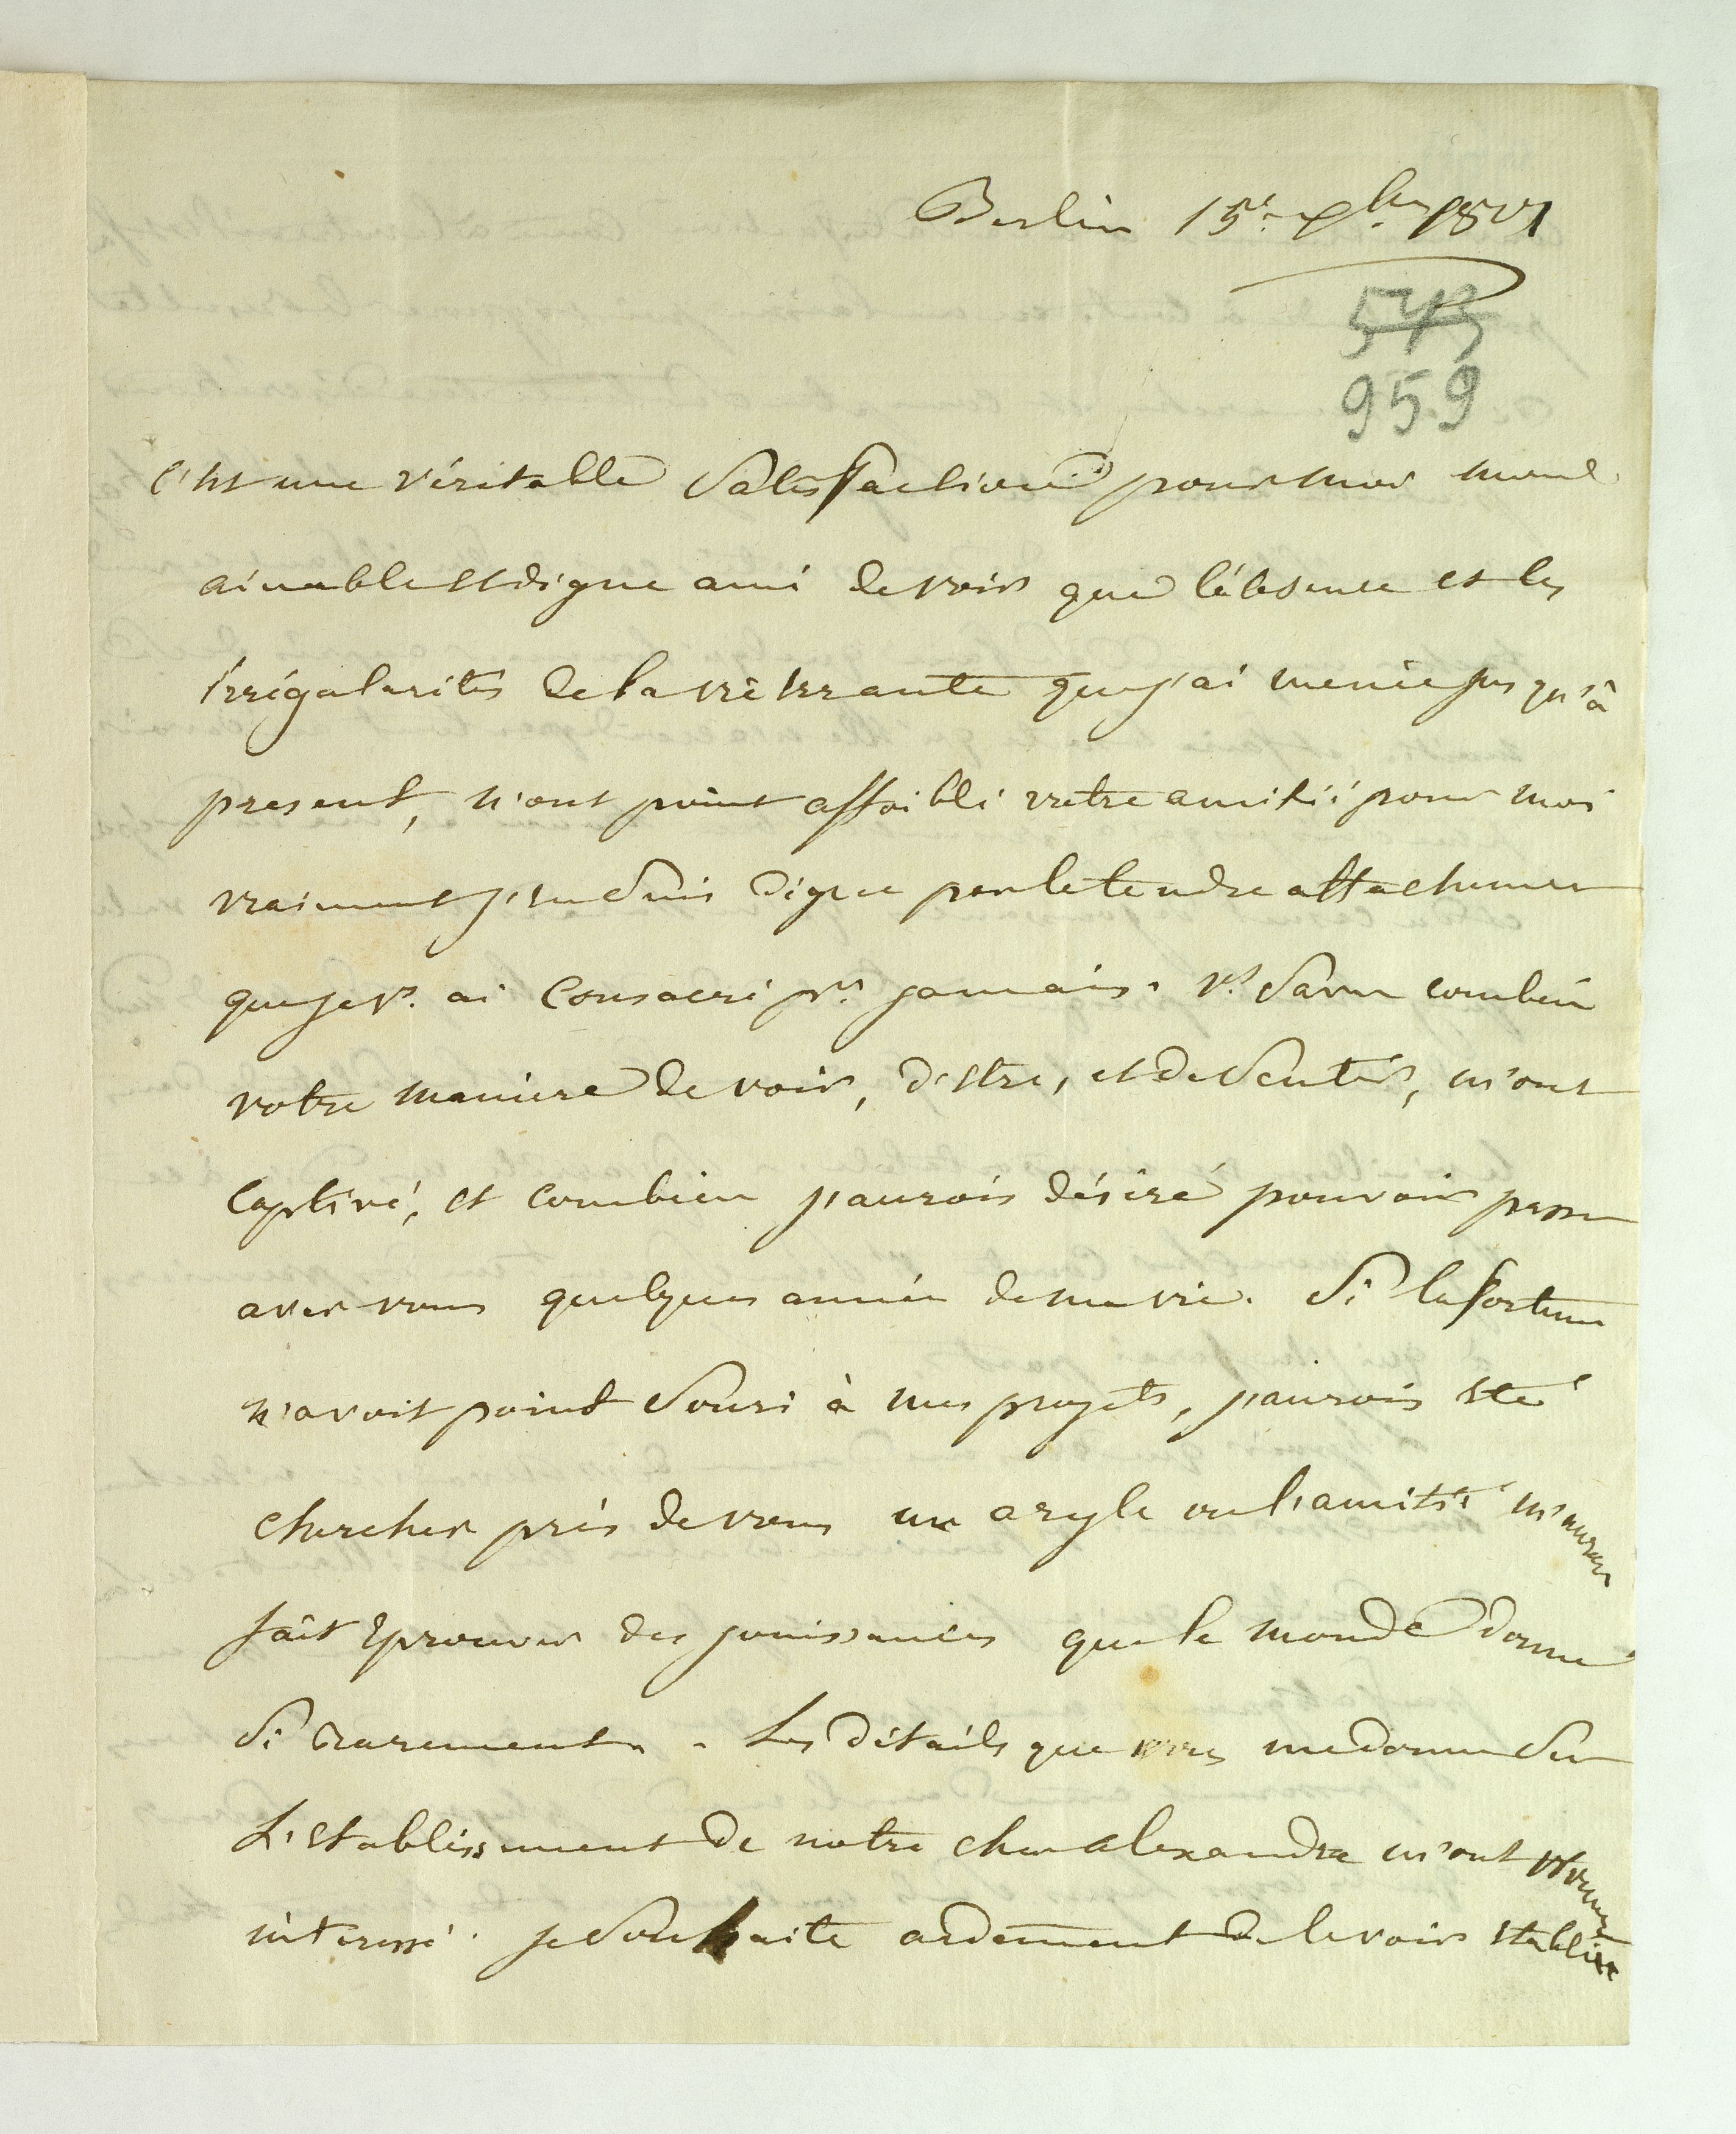 Berlin 15. xbre 1801
573
959
C'est une véritable Satisfaction pour moi mon
aimable et digne ami de voir que l'absence et les
irrégularités de la vie errante que j'ai menée jusqu'à
present, n'ont point affoibli votre amitié pour moi
vraiment j'en Suis digne par le tendre attachement
que je vs. ai Consacré pr. jamais. vs. Savez combien
votre maniere de voir, d'etre, et de Sentir, m'ont
Captivé, et combien j'aurois désiré pouvoir passer
avec vous quelques années de ma vie. Si la fortune
n'avoit point Souri à mes projets, j'aurois eté
chercher près de vous un azyle ou l'amitié m'auroit
fait éprouver des jouissances que le monde donne
Si rarement. Les détails que vous me donnez Sur
L'etablissement de notre cher alexandre m'ont
interessé. je Souhaite ardemment de le voir etablir